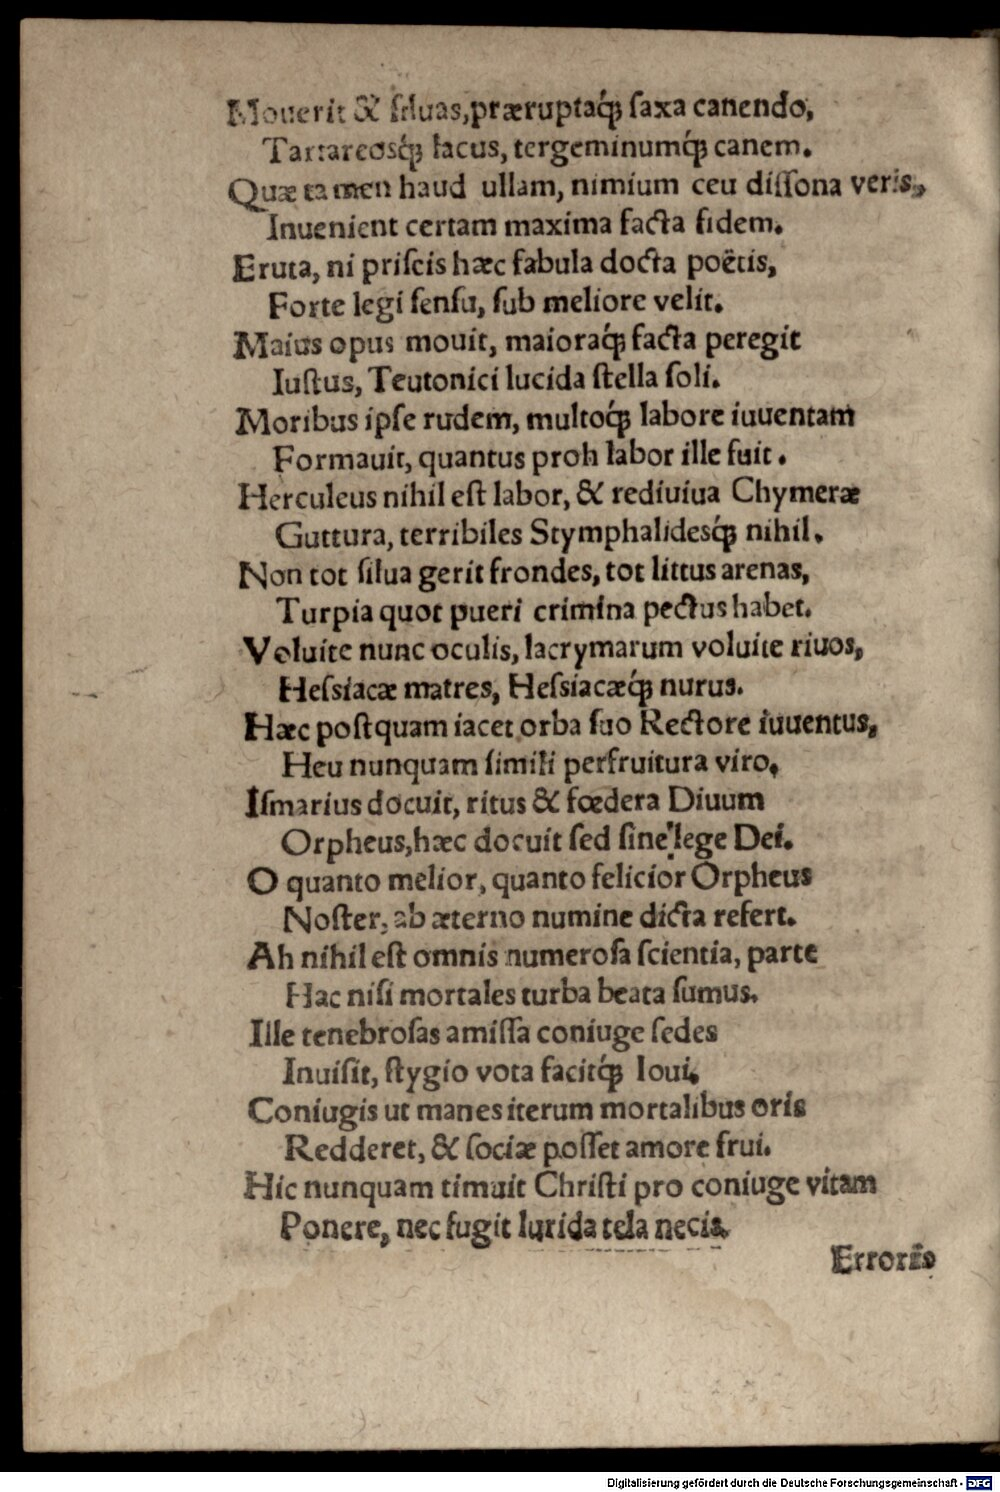 Mouerit & siluas, præruptaq́ꝫ saxa canendo,
Tartareosq́ꝫ lacus, tergeminumq́ꝫ canem.
Quæ tamen haud ullam, nimium ceu dissona veris,
Inuenient certam maxima facta fidem.
Eruta, ni priscis hæc fabula docta poëtis,
Forte legi sensu, sub meliore velit.
Maius opus mouit, maioraq́ꝫ facta peregit
Iustus, Teutonici lucida stella soli.
Moribus ipse rudem, multoq́ꝫ labore iuuentam
Formauit, quantus proh labor ille fuit.
Herculeus nihil est labor, & rediuiua Chymeræ
Guttura, terribiles Stymphalidesq́ꝫ nihil.
Non tot silua gerit frondes, tot littus arenas,
Turpia quot pueri crimina pectus habet.
Voluite nunc oculis, lacrymarum voluite riuos,
Hessiacæ matres, Hessiacæq́ꝫ nurus.
Hæc postquam iacet orba suo Rectore iuuentus,
Heu nunquam simili perfruitura viro.
Ismarius docuit, ritus & fœdera Diuum
Orpheus, hæc docuit sed sine lege Dei.
O quanto melior, quanto felicior Orpheus
Noster, ab æterno numine dicta refert.
Ah nihil est omnis numerosa scientia, parte
Hac nisi mortales turba beata sumus.
Ille tenebrosas amissa coniuge sedes
Inuisit, stygio vota facitq́ꝫ Ioui.
Coniugis ut manes iterum mortalibus oris
Redderet, & sociæ posset amore frui.
Hic nunquam timuit Christi pro coniuge vitam
Ponere, nec fugit lurida tela necis.
Erroris
Digitalisierung gefördert durch die Deutsche Forschungsgemeinschaft - DFG